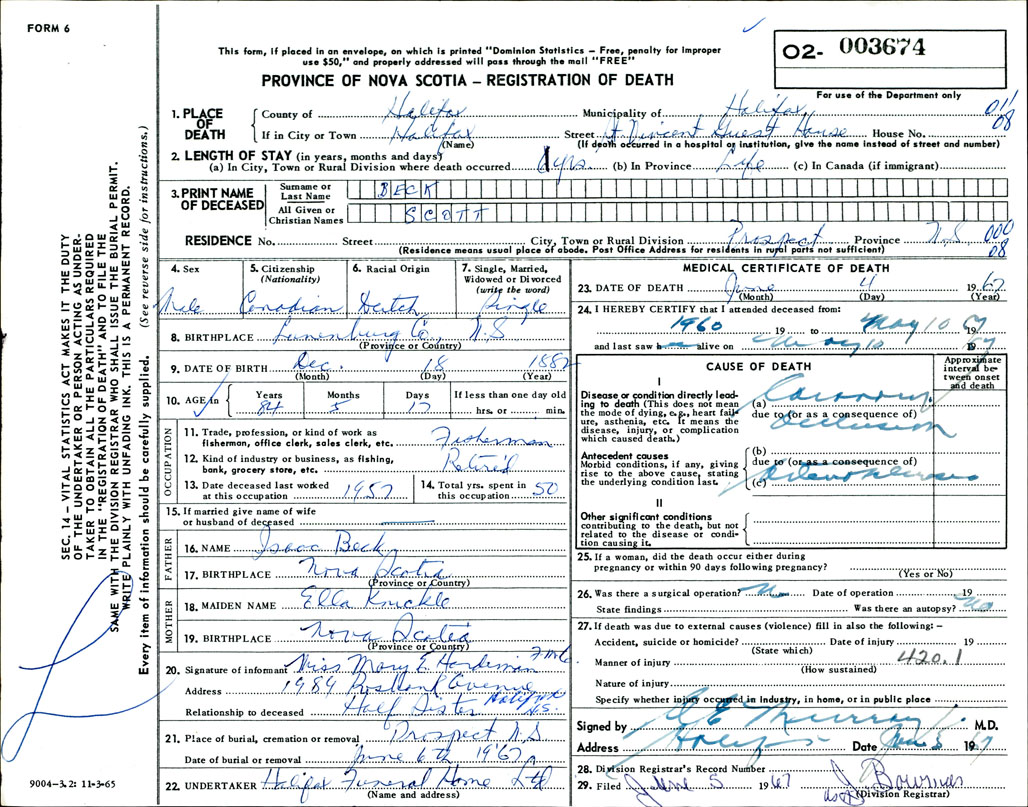 FORM 6
This form, if placed in an envelope, on which is printed "Dominion Statistics – Free, penalty for improper
use $50," and properly addressed will pass through the mail "FREE"
PROVINCE OF NOVA SCOTIA – REGISTRATION OF DEATH
O2- 003674
For use of the Department only
1. PLACE OF DEATH { County of Halifax Municipality of Halifax 011
If in City or Town Halifax Street St Vincent Guest House House No. 08
(Name) (If death occurred in a hospital or institution, give the name instead of street and number)
2. LENGTH OF STAY (in years, months and days)
(a) In City, Town or Rural Division where death occurred yrs. (b) In Province Life (c) In Canada (if immigrant)
3. PRINT NAME OF DECEASED Surname or Last Name BECK
All Given or Christian Names SCOTT
RESIDENCE No. Street City, Town or Rural Division Prospect Province N.S. 000
(Residence means usual place of abode. Post Office Address for residents in rural parts not sufficient) 08
4. Sex Male
5. Citizenship (Nationality) Canadian
6. Racial Origin Dutch
7. Single, Married, Widowed or Divorced (write the word) Single
8. BIRTHPLACE Lunenburg Co. N.S
(Province or Country)
9. DATE OF BIRTH Dec. 18 1882
(Month) (Day) (Year)
10. AGE in Years 84 Months 5 Days 17 If less than one day old hrs. or min.
OCCUPATION
11. Trade, profession, or kind of work as
fisherman, office clerk, sales clerk, etc. Fisherman
12. Kind of industry or business, as fishing,
bank, grocery store, etc. Retired
13. Date deceased last worked
at this occupation 1957
14. Total yrs. spent in
this occupation 50
15. If married give name of wife
or husband of deceased
FATHER
16. NAME Isaac Beck
17. BIRTHPLACE Nova Scotia
(Province or Country)
MOTHER
18. MAIDEN NAME Ella Knickle
19. BIRTHPLACE Nova Scotia
(Province or Country)
20. Signature of informant Miss Mary E. Hardiman
Address 1984 Avenue
Halifax N.S.
Relationship to deceased Half Sister
21. Place of burial, cremation or removal Prospect N.S
Date of burial or removal June 6th 1967
22. UNDERTAKER Halifax Funeral Home Ltd
(Name and address)
MEDICAL CERTIFICATE OF DEATH
23. DATE OF DEATH June 4 1967
(Month) (Day) (Year)
24. I HEREBY CERTIFY that I attended deceased from:
1960 19 to May 10 1967
and last saw h alive on May 10 1967
CAUSE OF DEATH
Approximate interval between onset and death
I
Disease or condition directly leading to death (This does not mean
the mode of dying, e.g., heart failure, asthenia, etc. It means the
disease, injury, or complication
which caused death.)
(a) Coronary
due to (or as a consequence of)
occlusion
Antecedent causes
Morbid conditions, if any, giving
rise to the above cause, stating
the underlying condition last.
(b)
due to (or as a consequence of)
(c)
II
Other significant conditions
contributing to the death, but not
related to the disease or condition causing it.
25. If a woman, did the death occur either during
pregnancy or within 90 days following pregnancy?
(Yes or No)
26. Was there a surgical operation? No Date of operation 19
State findings Was there an autopsy? No
27. If death was due to external causes (violence) fill in also the following: –
Accident, suicide or homicide? Date of injury 19
(State which)
Manner of injury 420.1
(How sustained)
Nature of injury
Specify whether injury occured in industry, in home, or in public place
Signed by Murray M.D.
Address Halifax Date June 5 1967
28. Division Registrar's Record Number
29. Filed June 5 1967
(Division Registrar)
SEC. 14 – VITAL STATISTICS ACT MAKES IT THE DUTY
OF THE UNDERTAKER OR PERSON ACTING AS UNDERTAKER TO OBTAIN ALL THE PARTICULARS REQUIRED
IN THE "REGISTRATION OF DEATH" AND TO FILE THE
SAME WITH THE DIVISION REGISTRAR WHO SHALL ISSUE THE BURIAL PERMIT.
WRITE PLAINLY WITH UNFADING INK. THIS IS A PERMANENT RECORD.
Every item of information should be carefully supplied. (See reverse side for instructions.)
9004-3.2: 11-3-65